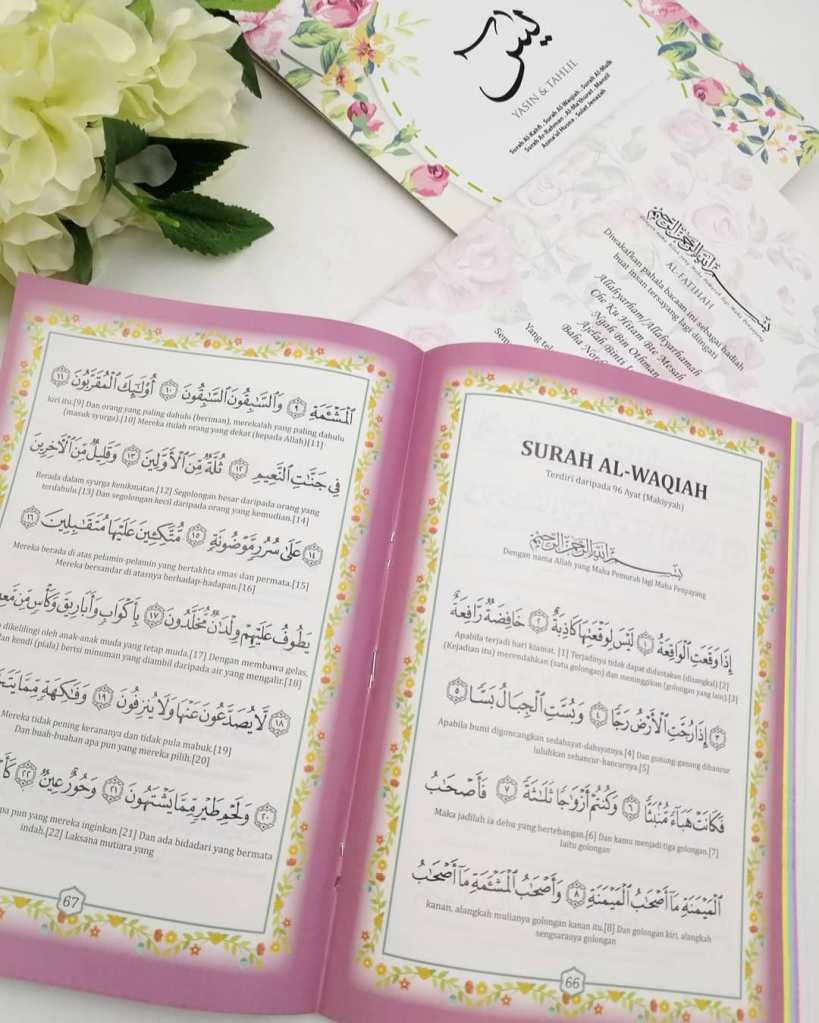 يٰسٓ
YASIN & TAHLIL
Surah Al-Kahfi . Surah Al-Waqiah . Surah Al-Mulk
Surah Ar-Rahman . Al-Ma'thurat . Manzil
Asma'ul Husna . Solat Jenazah
بِسْمِ اللَّهِ الرَّحْمَنِ الرَّحِيمِ
AL-FATIHAH
Diwakafkan pahala bacaan ini sebagai hadiah
buat insan tersayang lagi diingati
Allahyarham/Allahyarhamah
Che Ku Hitam Bte Mesah
Ngah Bin Othman
Ajelah Binti
Yang tel
Sem
SURAH AL-WAQIAH
Terdiri daripada 96 Ayat (Makiyyah)
بِسْمِ اللَّهِ الرَّحْمَنِ الرَّحِيمِ
Dengan nama Allah yang Maha Pemurah lagi Maha Penyayang
إِذَا وَقَعَتِ الْوَاقِعَةُ ١ لَيْسَ لِوَقْعَتِهَا كَاذِبَةٌ ٢ خَافِضَةٌ رَّافِعَةٌ
Apabila terjadi hari kiamat, [1] Terjadinya tidak dapat didustakan (disangkal).[2]
(Kejadian itu) merendahkan (satu golongan) dan meninggikan (golongan yang lain).[3]
٣ إِذَا رُجَّتِ الْأَرْضُ رَجًّا ٤ وَبُسَّتِ الْجِبَالُ بَسًّا ٥
Apabila bumi digoncangkan sedahsyat-dahsyatnya.[4] Dan gunung-ganang dihancur
luluhkan sehancur-hancurnya.[5]
فَكَانَتْ هَبَاءً مُّنْبَثًّا ٦ وَكُنْتُمْ أَزْوَاجًا ثَلَاثَةً ٧ فَأَصْحَابُ
Maka jadilah ia debu yang berterbangan.[6] Dan kamu menjadi tiga golongan.[7]
Iaitu golongan
الْمَيْمَنَةِ مَا أَصْحَابُ الْمَيْمَنَةِ ٨ وَأَصْحَابُ الْمَشْئَمَةِ مَا أَصْحَابُ
kanan, alangkah mulianya golongan kanan itu.[8] Dan golongan kiri, alangkah
sengsaranya golongan
66
الْمَشْئَمَةِ ٩ وَالسَّابِقُونَ السَّابِقُونَ ١٠ أُولَٰئِكَ الْمُقَرَّبُونَ ١١
kiri itu.[9] Dan orang yang paling dahulu (beriman), merekalah yang paling dahulu
(masuk syurga).[10] Mereka itulah orang yang dekat (kepada Allah)[11]
فِي جَنَّاتِ النَّعِيمِ ١٢ ثُلَّةٌ مِّنَ الْأَوَّلِينَ ١٣ وَقَلِيلٌ مِّنَ الْآخِرِينَ
Berada dalam syurga kenikmatan.[12] Segolongan besar daripada orang yang
terdahulu.[13] Dan segolongan kecil daripada orang yang kemudian.[14]
١٤ عَلَىٰ سُرُرٍ مَّوْضُونَةٍ ١٥ مُّتَّكِئِينَ عَلَيْهَا مُتَقَابِلِينَ ١٦
Mereka berada di atas pelamin-pelamin yang bertakhta emas dan permata.[15]
Mereka bersandar di atasnya berhadap-hadapan.[16]
يَطُوفُ عَلَيْهِمْ وِلْدَانٌ مُّخَلَّدُونَ ١٧ بِأَكْوَابٍ وَأَبَارِيقَ وَكَأْسٍ مِّن
dikelilingi oleh anak-anak muda yang tetap muda.[17] Dengan membawa gelas,
dan kendi (piala) berisi minuman yang diambil daripada air yang mengalir.[18]
١٨ لَّا يُصَدَّعُونَ عَنْهَا وَلَا يُنزِفُونَ ١٩ وَفَاكِهَةٍ مِّمَّا
Mereka tidak pening kerananya dan tidak pula mabuk.[19]
Dan buah-buahan apa pun yang mereka pilih.[20]
٢٠ وَلَحْمِ طَيْرٍ مِّمَّا يَشْتَهُونَ ٢١ وَحُورٌ عِينٌ ٢٢
apa pun yang mereka inginkan.[21] Dan ada bidadari yang bermata
indah.[22] Laksana mutiara yang
67